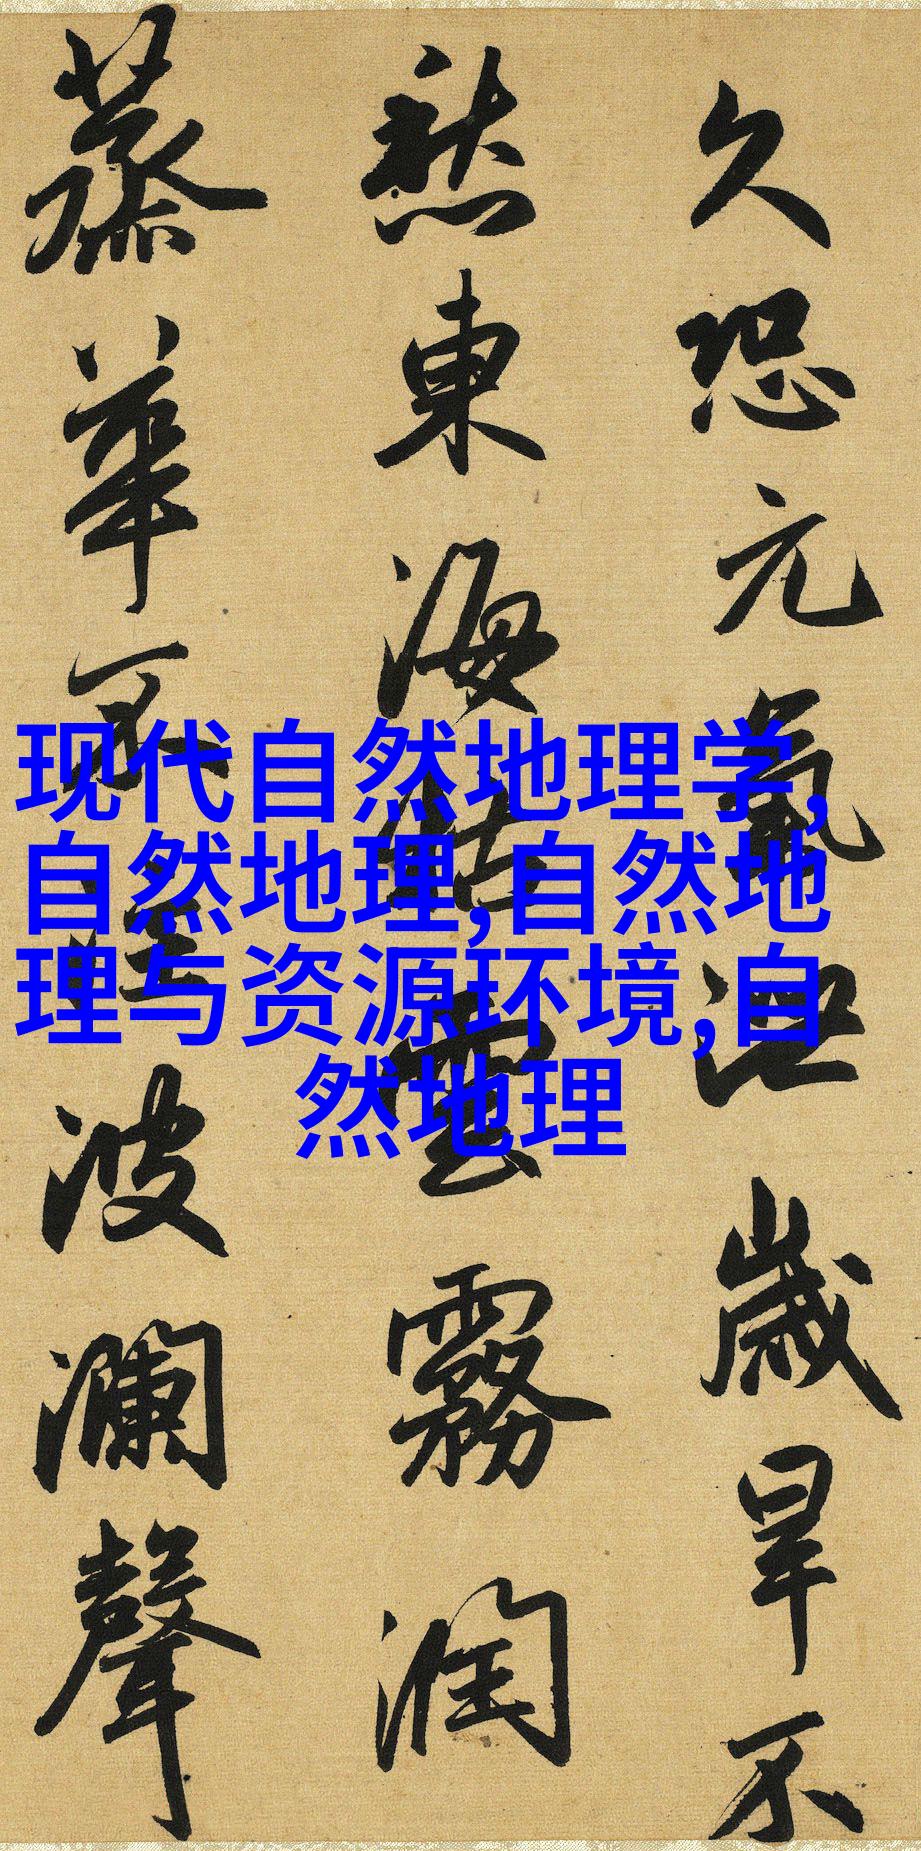 久恐元氣泄歲旱不
愁東海枯雲霧潤
蒸華不注波瀾聲
现代自然地理学,
自然地理,自然地
理与资源环境,自
然地理